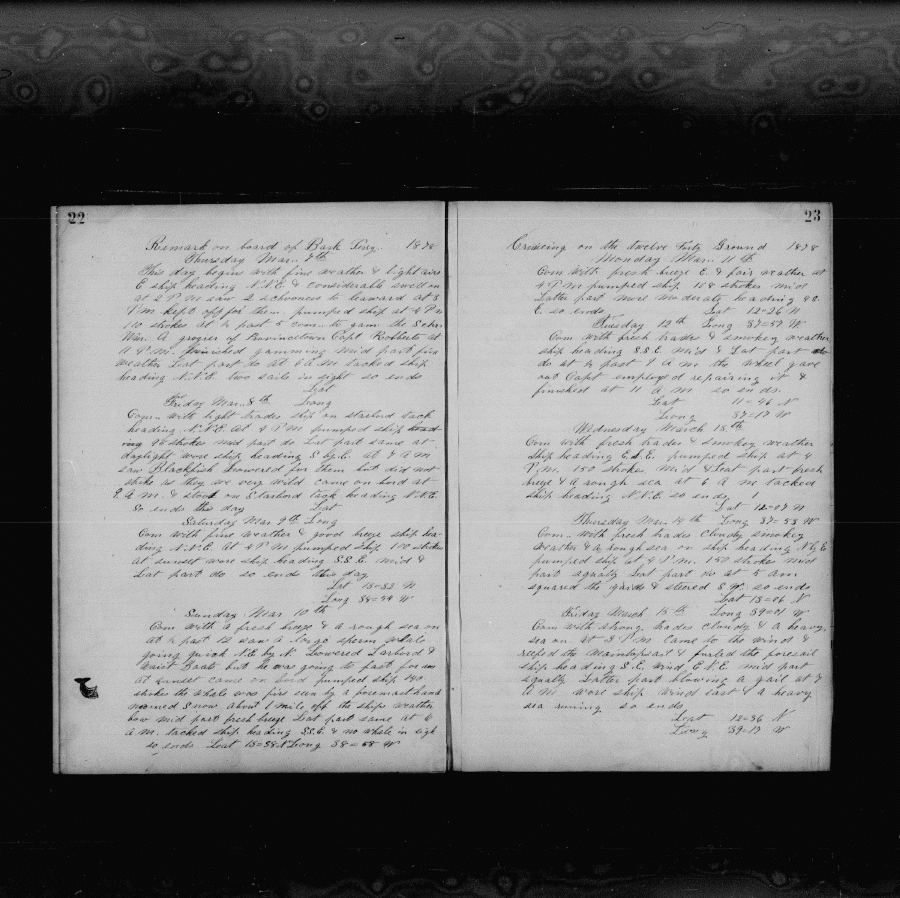 22
Remark on board of Bark 1878
Thursday Mar. 7th
This day begins with fine weather & light airs
E ship heading N.N.E & considerable swell on
at 2 P M saw 2 schooners to leward at 3
P.m. kept off for them. pumped ship at 4 P m
110 strokes at ½ past 5 com. to gam the Schr.
Wm. A grozer of Provincetown Capt Roberts at
P.m. finished gamming mid part fine
weather Lat part do at 6 A m tacked ship
heading N.N.E. two sails in sight so ends
Lat
Friday Mar. 8th Long
Com. with light trades ship on starbord tack
heading N.N.E. at 4 P m pumped ship
90 strokes mid part do Lat part same at
daylight wore ship heading S by E. at 7 A m
saw Blackfish Lowered for them but did not
strike as they we very wild came on bord at
9 A m. & stood on Starbord tack heading N.N.E.
So ends this day Lat
Saturday Mar 9th Long
Com with fine weather & good breeze ship hea-
ding N.N.E. At 4 P m pumped ship 100 strokes
at sunset wore ship heading S.S.E. mid &
Lat part do so ends this day
Lat 13=33 N
Long 38=44 W
Sunday Mar 10th
Com with a fresh breeze & a rough sea on
at ½ past 12 saw a large sperm whale
going quick N.E. by N. Lowered Larbord &
Waist Boats but he was going to fast for us
at sunset came on bord pumped ship 140
strokes the whale was firs seen by a foremast hand
named Snow about 1 mile off the ships weather
bow mid part fresh breeze Lat part same at 6
a m. tacked ship heading S.S.E. & no whale in sigh
so ends Lat 13=38 N Long 38=58 W
23
Cruiscing on the twelve Forty Ground 1878
Monday Mar. 11th
Com With fresh breeze E. & fair weather at
4 P m pumped ship 118 strokes mid
Latter part more moderate heading
E. so ends Lat 12=26 N
Tuesday 12th Long 37=57 W
Com with fresh trades & smokey weather
ship heading S.S.E. mid & Lat part
do at ½ past 7 a m the wheel gave
out Capt employed repairing it &
finishest at 11 a m so ends.
Lat 11=46 N
Long 37=17 W
Wednesday March 13th
Com with fresh trades & smokey weather
ship heading E.S.E. pumped ship at 4
P m. 150 strokes. Mid & Lat part fresh
breeze & a rough sea at 6 A m tacked
ship heading N.N.E. so ends.
Lat 12=07 N
Thursday Mar. 14th Long 37=53 W
Com. with fresh trades cloudy smokey
weather & a rough sea on ship heading N by E
pumped ship at 4 P.m. 150 strokes mid
part squaly Lat part do at 5 am
squared the yards & steered S W. so ends
Lat 13=06 N
Friday March 15th Long 39=01 W
Com with strong trades cloudy & a heavy
sea on at 3 P m came to the wind &
reefed the Maintopsail & furled the foresail
ship heading S.E. wind E.N.E. mid part
squaly Latter part blowing a gail at 7
A m. wore ship wind east & a heavy
sea runing so ends
Lat 12=36 N
Long 39=17 W